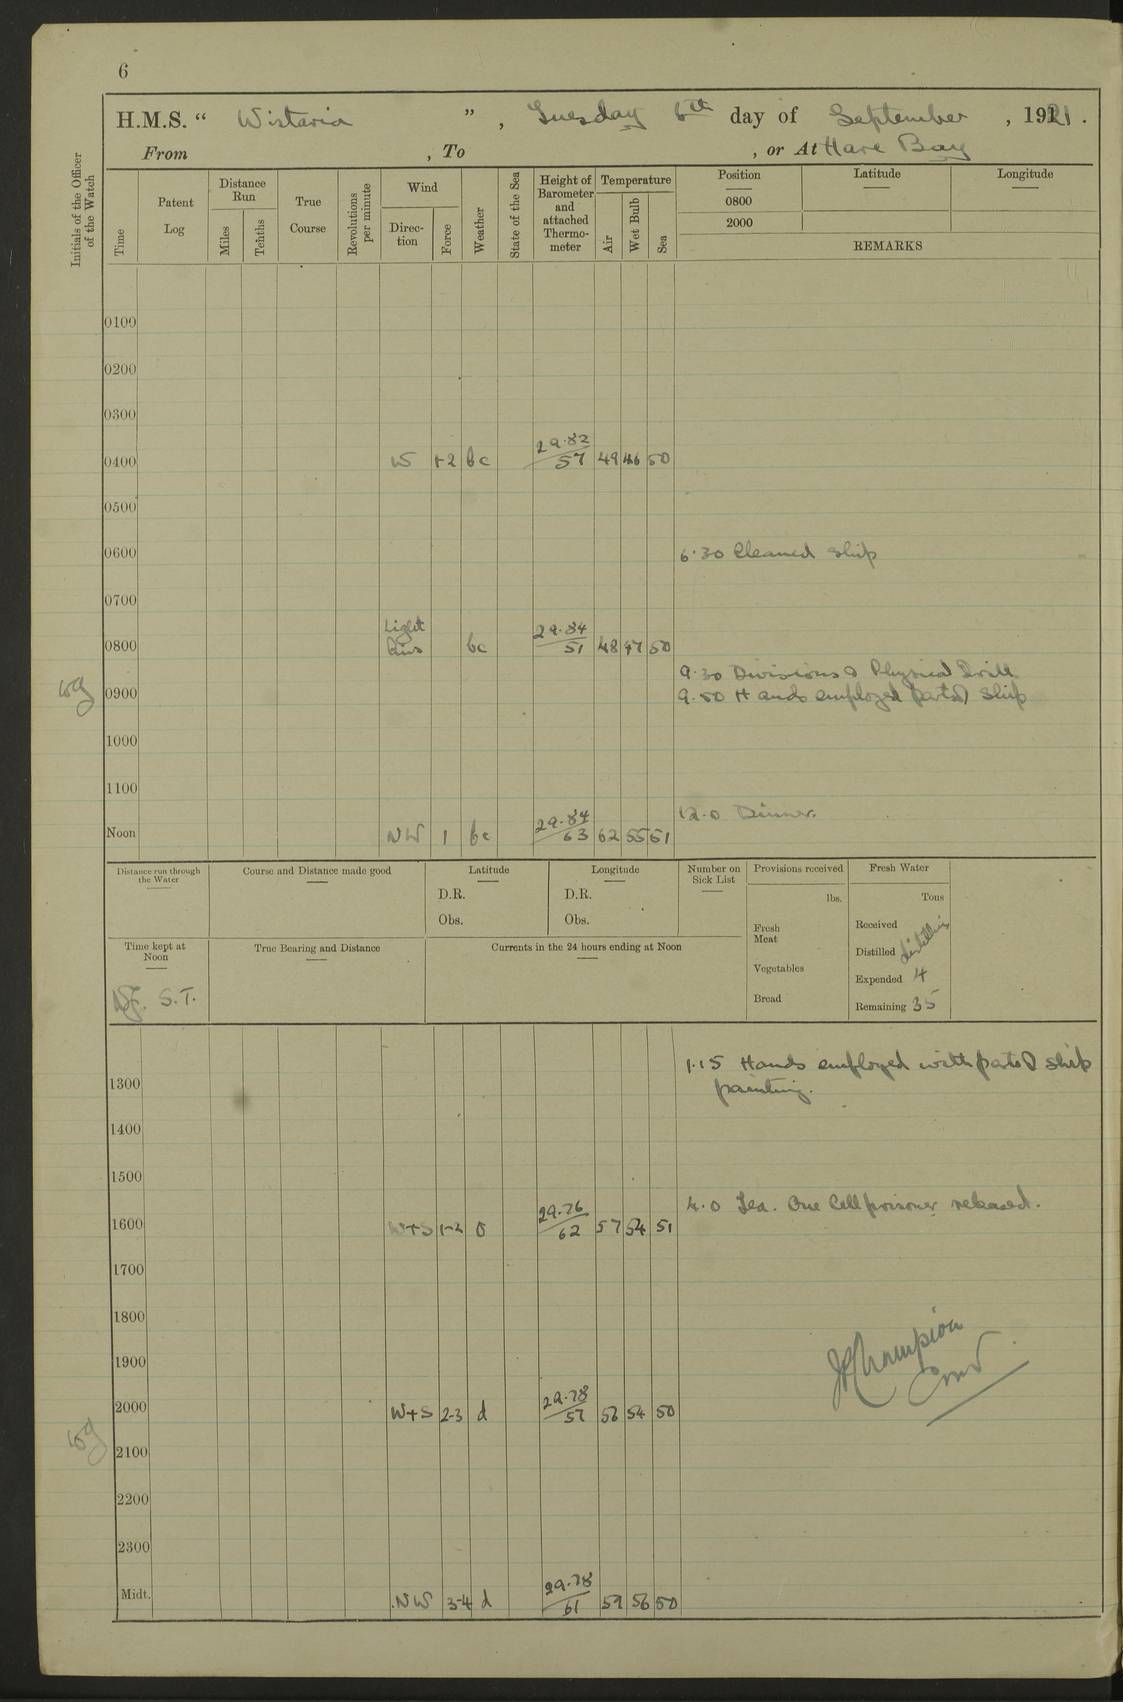 6
H.M.S. “ Wistaria ” , Tuesday 6th day of September , 1921 .
From , To , or At Hare Bay
Initials of the Officer of the Watch
Time
Patent Log
Distance Run
Miles
Tenths
True Course
Revolutions per minute
Wind
Direction
Force
Weather
State of the Sea
Height of Barometer and attached Thermometer
Temperature
Air
Wet Bulb
Sea
Position
Latitude
Longitude
0800
2000
REMARKS
0100
0200
0300
0400 W 1-2 bc 29.82/57 49 46 50
0500
0600 6.30 Cleaned Ship
0700
0800 Light Airs bc 29.84/51 48 47 50
9.30 Divisions & Physical Drill
0900 9.50 Hands employed part of Ship
1000
1100
12.0 Dinner.
Noon NW 1 bc 29.84/63 62 55 51
Distance run through the Water
Course and Distance made good
Latitude
D.R.
Obs.
Longitude
D.R.
Obs.
Number on Sick List
Provisions received
lbs.
Fresh Meat
Vegetables
Bread
Fresh Water
Tons
Received
Distilled distilling
Expended 4
Remaining 35
Time kept at Noon
S.T.
True Bearing and Distance
Currents in the 24 hours ending at Noon
1.15 Hands employed with part of Ship
painting.
1300
1400
1500
4.0 Tea. One Cell prisoner released.
1600 W+S 1-2 o 29.76/62 57 54 51
1700
1800
JPChampion
Comdr
1900
2000 W+S 2-3 d 29.78/57 56 54 50
2100
2200
2300
Midt. NW 3-4 d 29.78/61 57 56 50